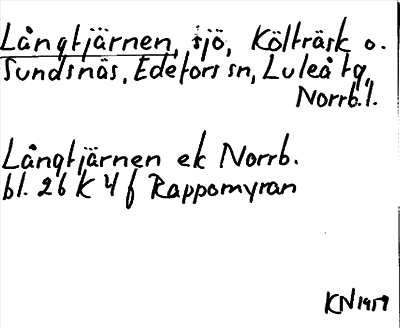 Långtjärnen, sjö, Költräsk o.
Sundsnäs, Edefors sn, Luleå tg,
Norrb. l.
Långtjärnen ek Norrb.
bl. 26 K 4 f Rappomyran
KN 1959